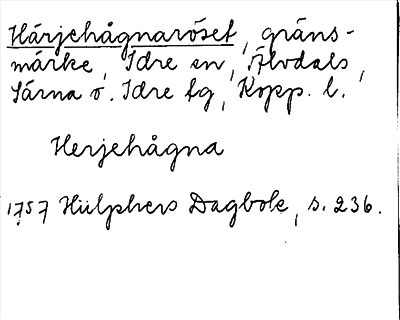 Härjehågnaröset, gräns-
märke, Idre sn, Älvdals,
Särna o. Idre tg, Kopp. l.
Herjehågna
1757 Hülphers Dagbok, s. 236.